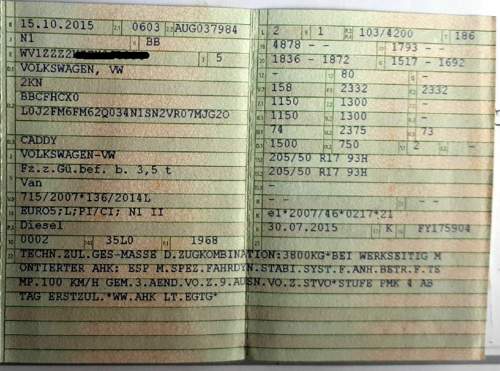 15.10.2015 0603 AUG037984
N1 BB
WV1ZZZ2 5
VOLKSWAGEN, VW
2KN
BBCFHCX0
L0J2FM6FM62Q034N1SN2VR07MJG2O
CADDY
VOLKSWAGEN-VW
Fz.z.Gü.bef. b. 3,5 t
Van
715/2007*136/2014L
EURO5;L;PI/CI; N1 II
Diesel
0002 35L0 1968
2 1 103/4200 186
4878 - - 1793 - -
1836 - 1872 1517 - 1692
- 80 -
158 2332 2332
1150 1300 -
1150 1300 -
74 2375 73
1500 750 2 -
205/50 R17 93H
205/50 R17 93H
-
- -
e1*2007/46*0217*21
30.07.2015 K FY175904
TECHN.ZUL.GES-MASSE D.ZUGKOMBINATION:3800KG*BEI WERKSEITIG M
ONTIERTER AHK: ESP M.SPEZ.FAHRDYN.STABI.SYST.F.ANH.BETR.F.TE
MP.100 KM/H GEM.3.AEND.VO.Z.9.AUSN.VO.Z.STVO*STUFE PMK 4 AB
TAG ERSTZUL.*WW.AHK LT.EGTG*